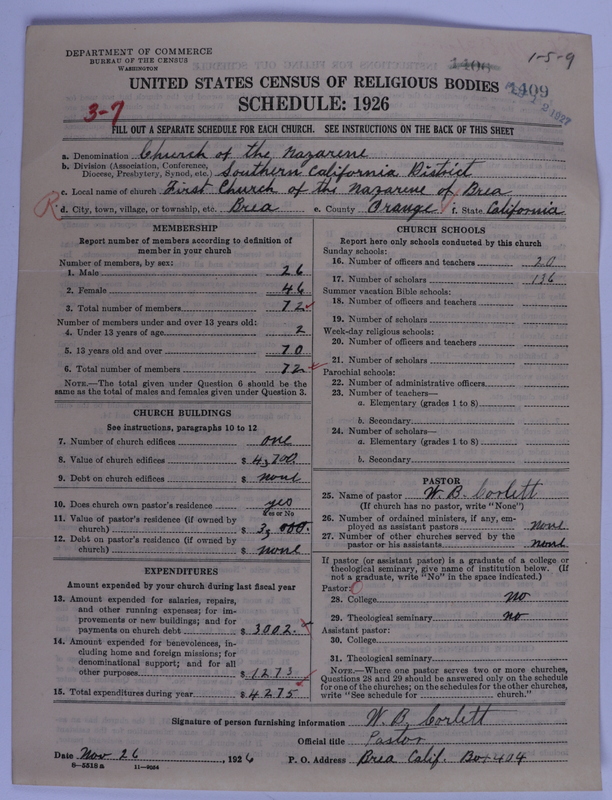 DEPARTMENT OF COMMERCE
BUREAU OF THE CENSUS
WASHINGTON
1406
1-5-9
UNITED STATES CENSUS OF RELIGIOUS BODIES
1409
SCHEDULE: 1926
3-7
2 1927
FILL OUT A SEPARATE SCHEDULE FOR EACH CHURCH. SEE INSTRUCTIONS ON THE BACK OF THIS SHEET
a. Denomination Church of the Nazarene
b. Division (Association, Conference,
Diocese, Presbytery, Synod, etc.) Southern California District
c. Local name of church First Church of the Nazarene of Brea
R d. City, town, village, or township, etc. Brea e. County Orange f. State California
MEMBERSHIP
Report number of members according to definition of
member in your church
Number of members, by sex:
1. Male 26
2. Female 46
3. Total number of members 72
Number of members under and over 13 years old:
4. Under 13 years of age 2
5. 13 years old and over 70
6. Total number of members 72
NOTE.—The total given under Question 6 should be the
same as the total of males and females given under Question 3.
CHURCH BUILDINGS
See instructions, paragraphs 10 to 12
7. Number of church edifices one
8. Value of church edifices $ 4,700
9. Debt on church edifices $ none
10. Does church own pastor's residence yes
Yes or No
11. Value of pastor's residence (if owned by
church) $ 3,000.
12. Debt on pastor's residence (if owned by
church) $ none
EXPENDITURES
Amount expended by your church during last fiscal year
13. Amount expended for salaries, repairs,
and other running expenses; for im-
provements or new buildings; and for
payments on church debt $ 3002.
14. Amount expended for benevolences, in-
cluding home and foreign missions; for
denominational support; and for all
other purposes $ 1273
15. Total expenditures during year $ 4275
CHURCH SCHOOLS
Report here only schools conducted by this church
Sunday schools:
16. Number of officers and teachers 20
17. Number of scholars 136
Summer vacation Bible schools:
18. Number of officers and teachers
19. Number of scholars
Week-day religious schools:
20. Number of officers and teachers
21. Number of scholars
Parochial schools:
22. Number of administrative officers
23. Number of teachers—
a. Elementary (grades 1 to 8)
b. Secondary
24. Number of scholars—
a. Elementary (grades 1 to 8)
b. Secondary
PASTOR
25. Name of pastor W. B. Corlett
(If church has no pastor, write "None")
26. Number of ordained ministers, if any, em-
ployed as assistant pastors none
27. Number of other churches served by the
pastor or his assistants none
If pastor (or assistant pastor) is a graduate of a college or
theological seminary, give name of institution below. (If
not a graduate, write "No" in the space indicated.)
Pastor:
28. College no
29. Theological seminary no
Assistant pastor:
30. College
31. Theological seminary
NOTE.—Where one pastor serves two or more churches,
Questions 28 and 29 should be answered only on the schedule
for one of the churches; on the schedules for the other churches,
write "See schedule for church."
Signature of person furnishing information W. B. Corlett
Official title Pastor
Date Nov 26, 1926 P. O. Address Brea Calif. Box 404
8—5518a 11—9024